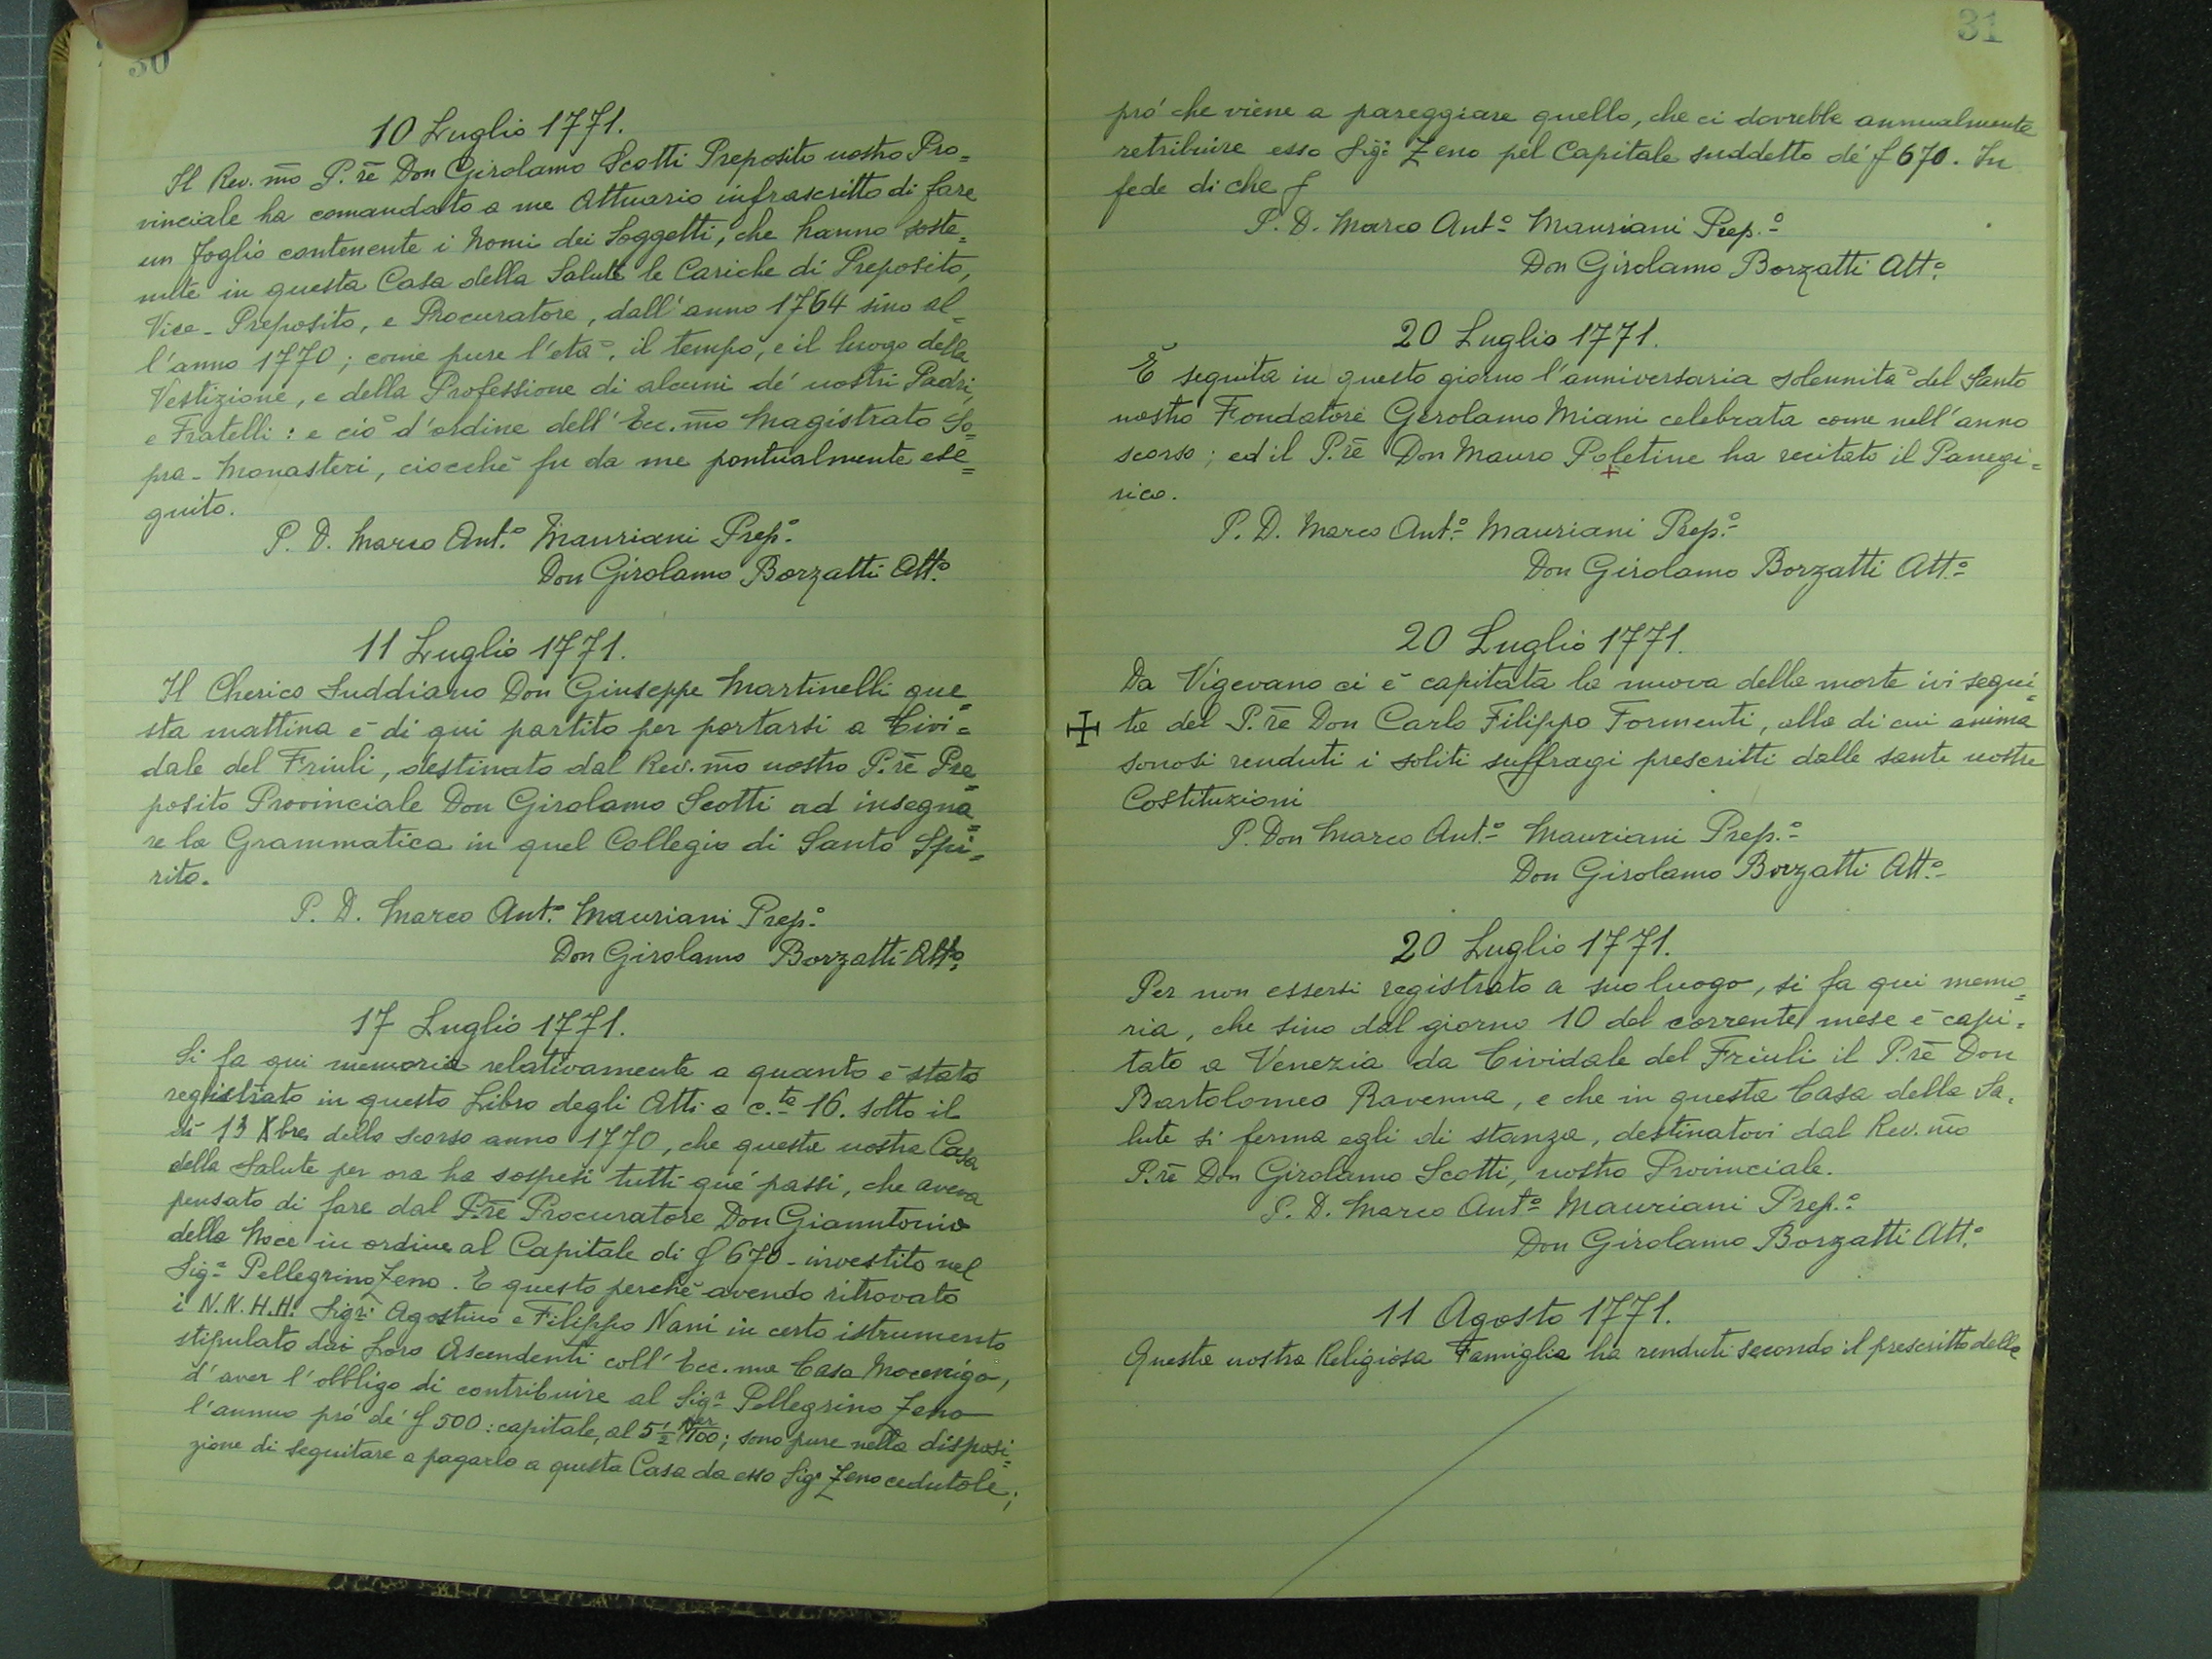 30
10 Luglio 1771.
Il Rev.mo P.re Don Girolamo Scotti Preposito nostro Pro=
vinciale ha comandato a me Attuario infrascritto di fare
un foglio contenente i Nomi dei Soggetti, che hanno soste=
nute in questa Casa della Salute le Cariche di Preposito,
Vice-Preposito, e Procuratore, dall'anno 1764 sino al=
l'anno 1770; come pure l'età, il tempo, e il luogo della
Vestizione, e della Professione di alcuni de' nostri Padri,
e Fratelli: e ciò d'ordine dell'Ecc.mo Magistrato So=
pra-Monasteri, ciocchè fu da me pontualmente ese=
guito.
P. D. Marco Ant.o Mauriani Prep.o
Don Girolamo Borzatti Att.o
11 Luglio 1771.
Il Cherico Suddiano Don Giuseppe Martinelli que=
sta mattina è di qui partito per portarsi a Civi=
dale del Friuli, destinato dal Rev.mo nostro P.re Pre=
posito Provinciale Don Girolamo Scotti ad insegna=
re la Grammatica in quel Collegio di Santo Spi=
rito.
P. D. Marco Ant.o Mauriani Prep.o
Don Girolamo Borzatti Att.o
17 Luglio 1771.
Si fa qui memoria relativamente a quanto è stato
registrato in questo Libro degli Atti a c.te 16. sotto il
dì 13 Xbre dello scorso anno 1770, che questa nostra Casa
della Salute per ora ha sospesi tutti que' passi, che aveva
pensato di fare dal P.re Procuratore Don Gianntonio
della Noce in ordine al Capitale di f 670 - investito nel
Sig.r Pellegrino Zeno. E questo perchè avendo ritrovato
i N.N. H.H. Sig.ri Agostino e Filippo Nani in certo istrumento
stipulato dai Loro Ascendenti coll'Ecc.ma Casa Mocenigo,
d'aver l'obbligo di contribuire al Sig.r Pellegrino Zeno
l'annuo prò de' f 500: capitale, al 5 1/2 per 100; sono pure nella disposi=
zione di seguitare a pagarlo a questa Casa da esso Sig.r Zeno cedutole;
31
prò che viene a pareggiare quello, che ci dovrebbe annualmente
retribuire esso Sig.r Zeno pel Capitale suddetto de' f 670. In
fede di che f
P. D. Marco Ant.o Mauriani Prep.o
Don Girolamo Borzatti Att.o
20 Luglio 1771.
È seguita in questo giorno l'anniversaria solennità del Santo
nostro Fondatore Gerolamo Miani celebrata come nell'anno
scorso; ed il P.re Don Mauro Poletine ha recitato il Panegi=
rico.
P. D. Marco Ant.o Mauriani Prep.o
Don Girolamo Borzatti Att.o
20 Luglio 1771.
Da Vigevano ci è capitata la nuova della morte ivi segui=
ta del P.re Don Carlo Filippo Tormenti, alla di cui anima
sonosi renduti i soliti suffragi prescritti dalle sante nostre
Costituzioni
P. Don Marco Ant.o Mauriani Prep.o
Don Girolamo Borzatti Att.o
20 Luglio 1771.
Per non essersi registrato a suo luogo, si fa qui memo=
ria, che sino dal giorno 10 del corrente mese è capi=
tato a Venezia da Cividale del Friuli il P.re Don
Bartolomeo Ravenna, e che in questa Casa della Sa=
lute si ferma egli di stanza, destinatovi dal Rev.mo
P.re Don Girolamo Scotti, nostro Provinciale.
P. D. Marco Ant.o Mauriani Prep.o
Don Girolamo Borzatti Att.o
11 Agosto 1771.
Questa nostra Religiosa Famiglia ha renduti secondo il prescritto delle